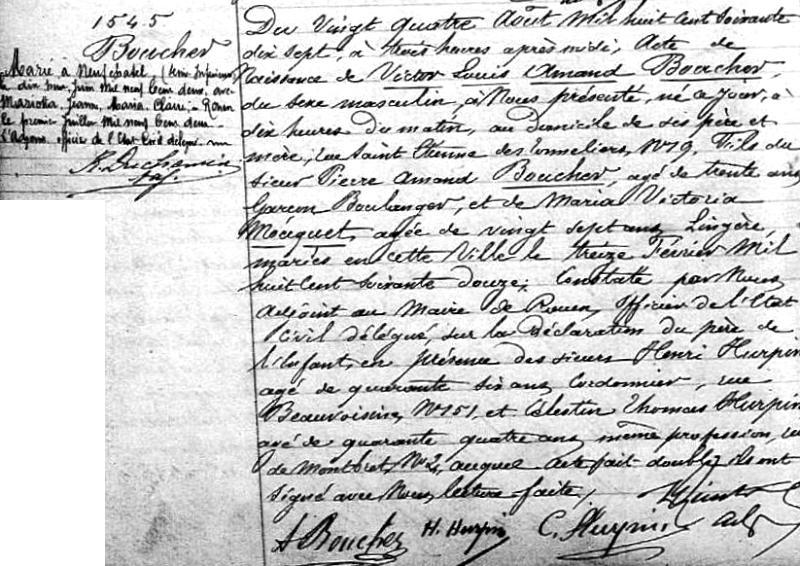 1545
Boucher
Marié à Neufchatel, (Seine Inférieure)
le dix Juin mil neuf cent deux avec
Jeanne, Maria, Claire. - Rouen
le premier Juillet mil neuf cent deux.
officier de l'Etat Civil délégué
Du Vingt quatre Août Mil huit Cent Soixante
dix sept, à trois heures après midi, Acte de
Naissance de Victor Louis Amand Boucher,
du sexe masculin, à Nous présenté, né ce Jour, à
dix heures du matin, au domicile de ses père et
mère, rue Saint Etienne des Tonneliers, No 19. Fils du
sieur Pierre Amand Boucher, agé de trente ans
Garçon Boulanger, et de Maria Victoria
Mocquet, agée de vingt sept ans, Lingère,
mariés en cette Ville le treize Février Mil
huit Cent Soixante douze; Constaté par Nous
Adjoint au Maire de Rouen, Officier de l'Etat
Civil délégué, sur la Déclaration du père de
l'Enfant, en présence des sieurs Henri Hurpin
agé de quarante six ans, Cordonnier, rue
Beauvoisine, No 151, et Célestin Thomas Hurpin
agé de quarante quatre ans, même profession, rue
de Montbret, No 2, auquel acte fait double, ils ont
Signé avec Nous, lecture faite,
A Boucher H. Hurpin C. Hurpin adj